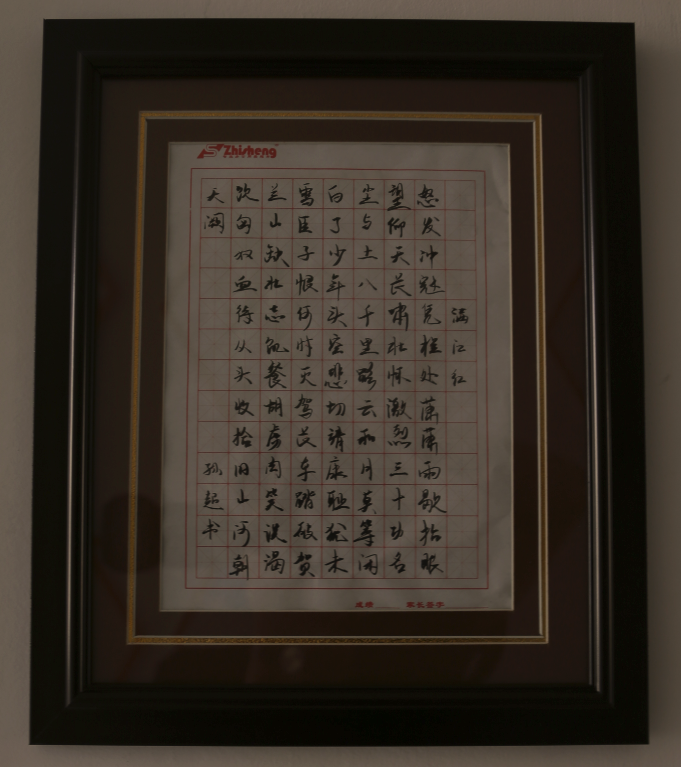 Zhisheng
满江红
怒发冲冠凭栏处萧萧雨歇抬眼
望仰天长啸壮怀激烈三十功名
尘与土八千里路云和月莫等闲
白了少年头空悲切靖康耻犹未
雪臣子恨何时灭驾长车踏破贺
兰山缺壮志饥餐胡虏肉笑谈渴
饮匈奴血待从头收拾旧山河朝
天阙
孙超书
成绩 家长签字